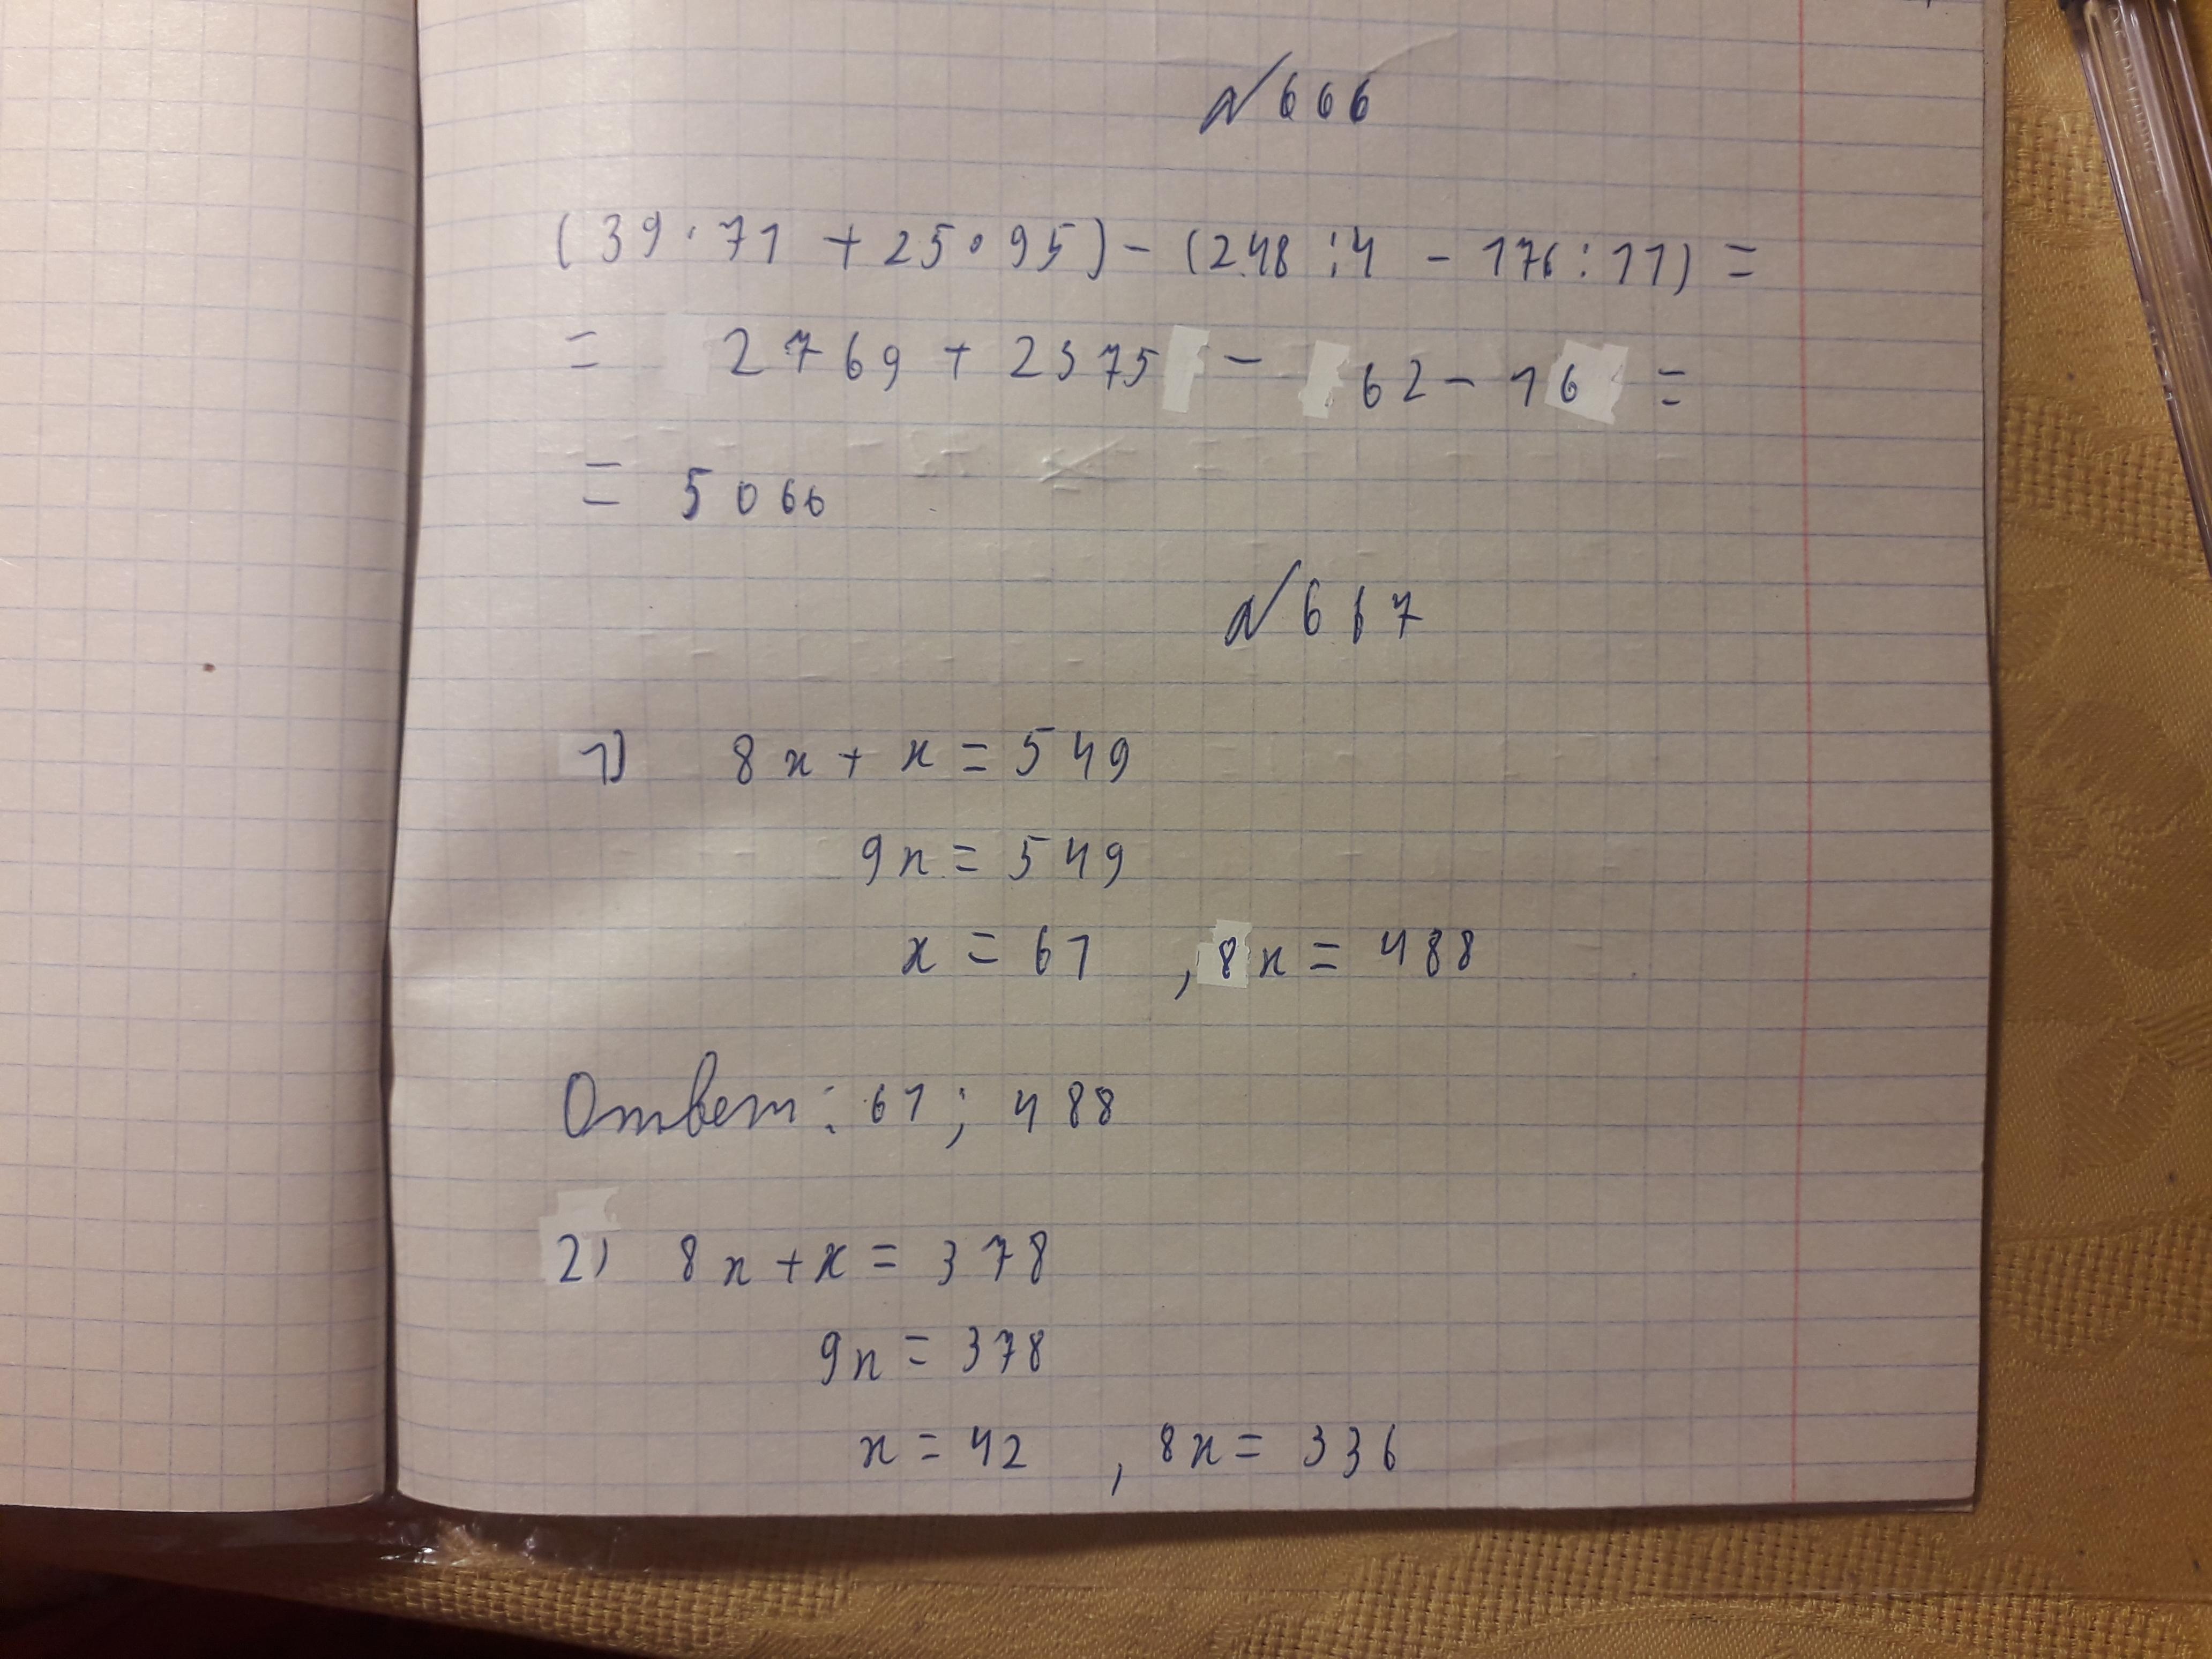 №666
(39·71 + 25·95) - (248:4 - 176:11) =
= 2769 + 2375 - 62 - 16 =
= 5066
№667
1) 8x + x = 549
9x = 549
x = 61 , 8x = 488
Ответ: 61; 488
2) 8x + x = 378
9x = 378
x = 42 , 8x = 336